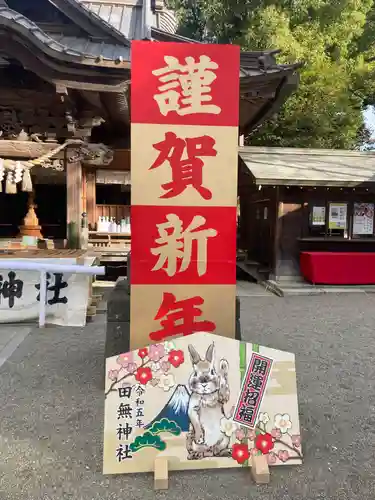 謹
賀
新
年
開運招福
令和五年
田無神社
神社